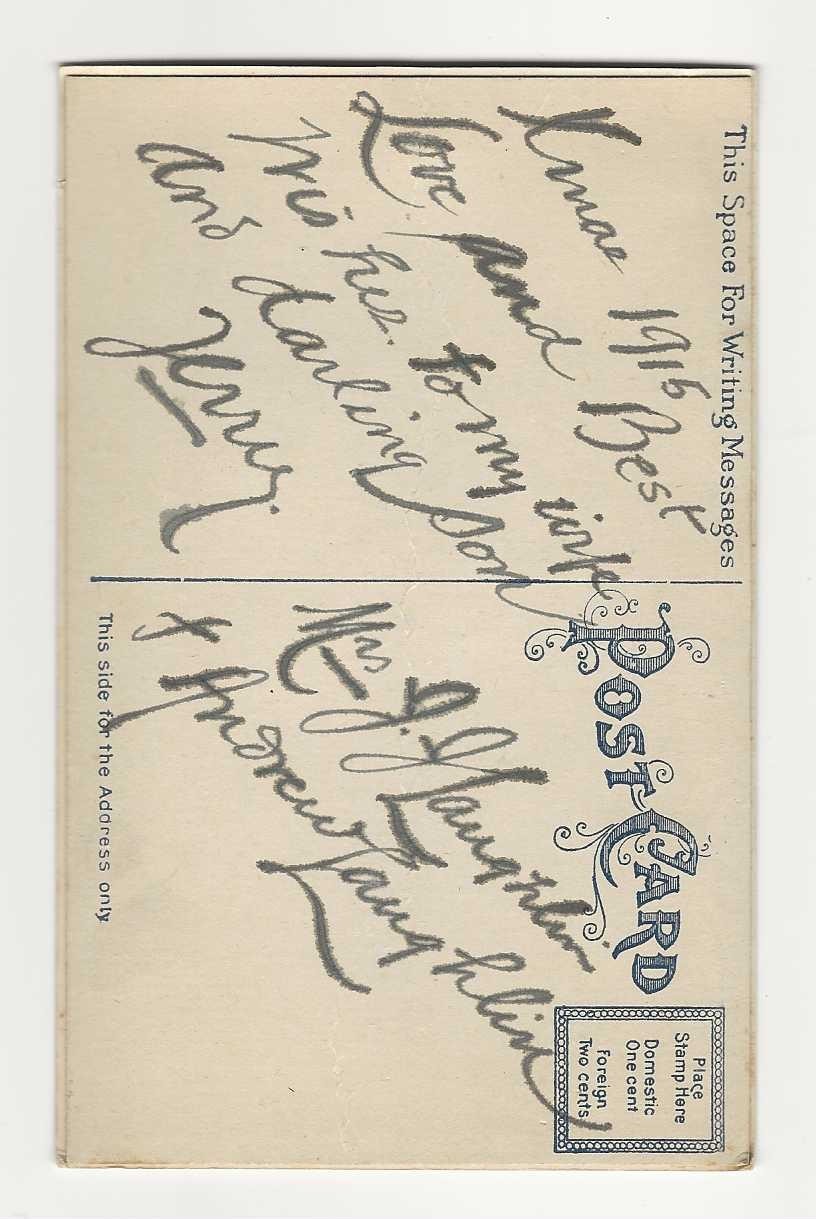 This Space For Writing Messages
Xmas 1915 Best
Love and
Wishes. to my wife
and darling Son
Jerry.
POST CARD
Place
Stamp Here
Domestic
One cent
Foreign
Two cents
Mrs J. J Laughlin
+ Andrew Laughlin
This side for the Address only